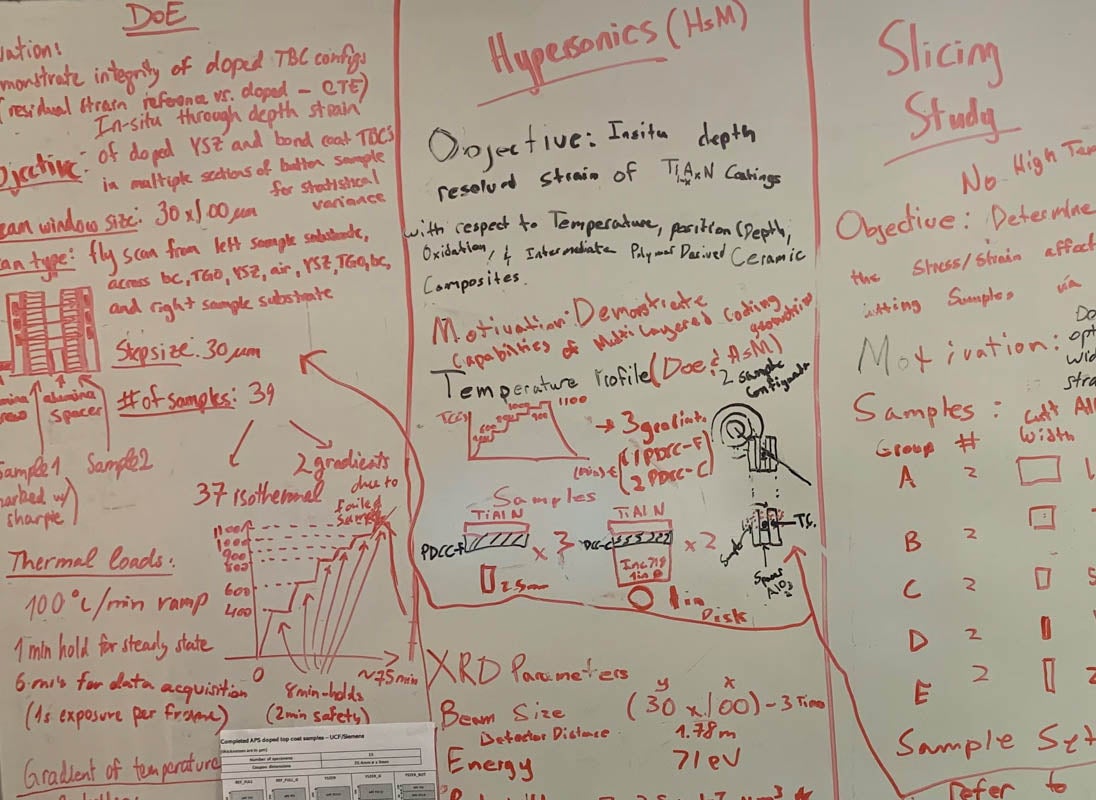 DoE
vation:
monstrate integrity of doped TBC configs
(residual strain reference vs. doped - CTE)
In-situ through depth strain
Objective: of doped YSZ and bond coat TBC's
in multiple sections of button sample
for statistical
variance
eam window size: 30 x 100 μm
can type: fly scan from left sample substrate,
across bc, TGO, YSZ, air, YSZ, TGO, bc,
and right sample substrate
Step size: 30 μm
mina
alumina
spacer
# of samples: 39
Sample 1
Sample 2
marked w/
sharpie)
37 isothermal
2 gradients
due to
failed
sample
Thermal loads:
1100
1000
900
800
600
400
100°c/min ramp
1 min hold for steady state
6 min's for data acquisition
(1s exposure per frame)
0
~75min
8min-holds
(2min safety)
Gradient of temperature
Completed APS doped top coat samples - UCF/Siemens
Number of specimens
Coupon dimensions
REF_FULL
Hypersonics (HsM)
Objective: Insitu depth
resolved strain of Ti1-xAlxN Coatings
with respect to Temperature, position (Depth,
Oxidation, & Intermediate Polymer Derived Ceramic
Composites.
Motivation: Demonstrate
Capabilities of Multi Layered Coating
geometries
Temperature Profile (DoE & HsM)
2 sample
Configurations
T(C)
1100
→ 3 gradient
(1 PDCC-F
2 PDCC-C)
(min) t
Samples
TiAlN
PDCC-F
x 3
2.5mm
TiAlN
Inc 718
1in
x 2
1 in
Disk
TC.
Spacer
XRD Parameters
y x
Beam Size (30 x 100) - 3 Time
Detector Distance 1.78m
Energy 71 eV
Slicing
Study
No High Tem
Objective: Determine
the stress/strain affect
cutting Samples via
Motivation:
Do
opt
wid
stra
Samples: Cut All
Group # Width
A 2
B 2
C 2
D 2
E 2
Sample Set
refer to